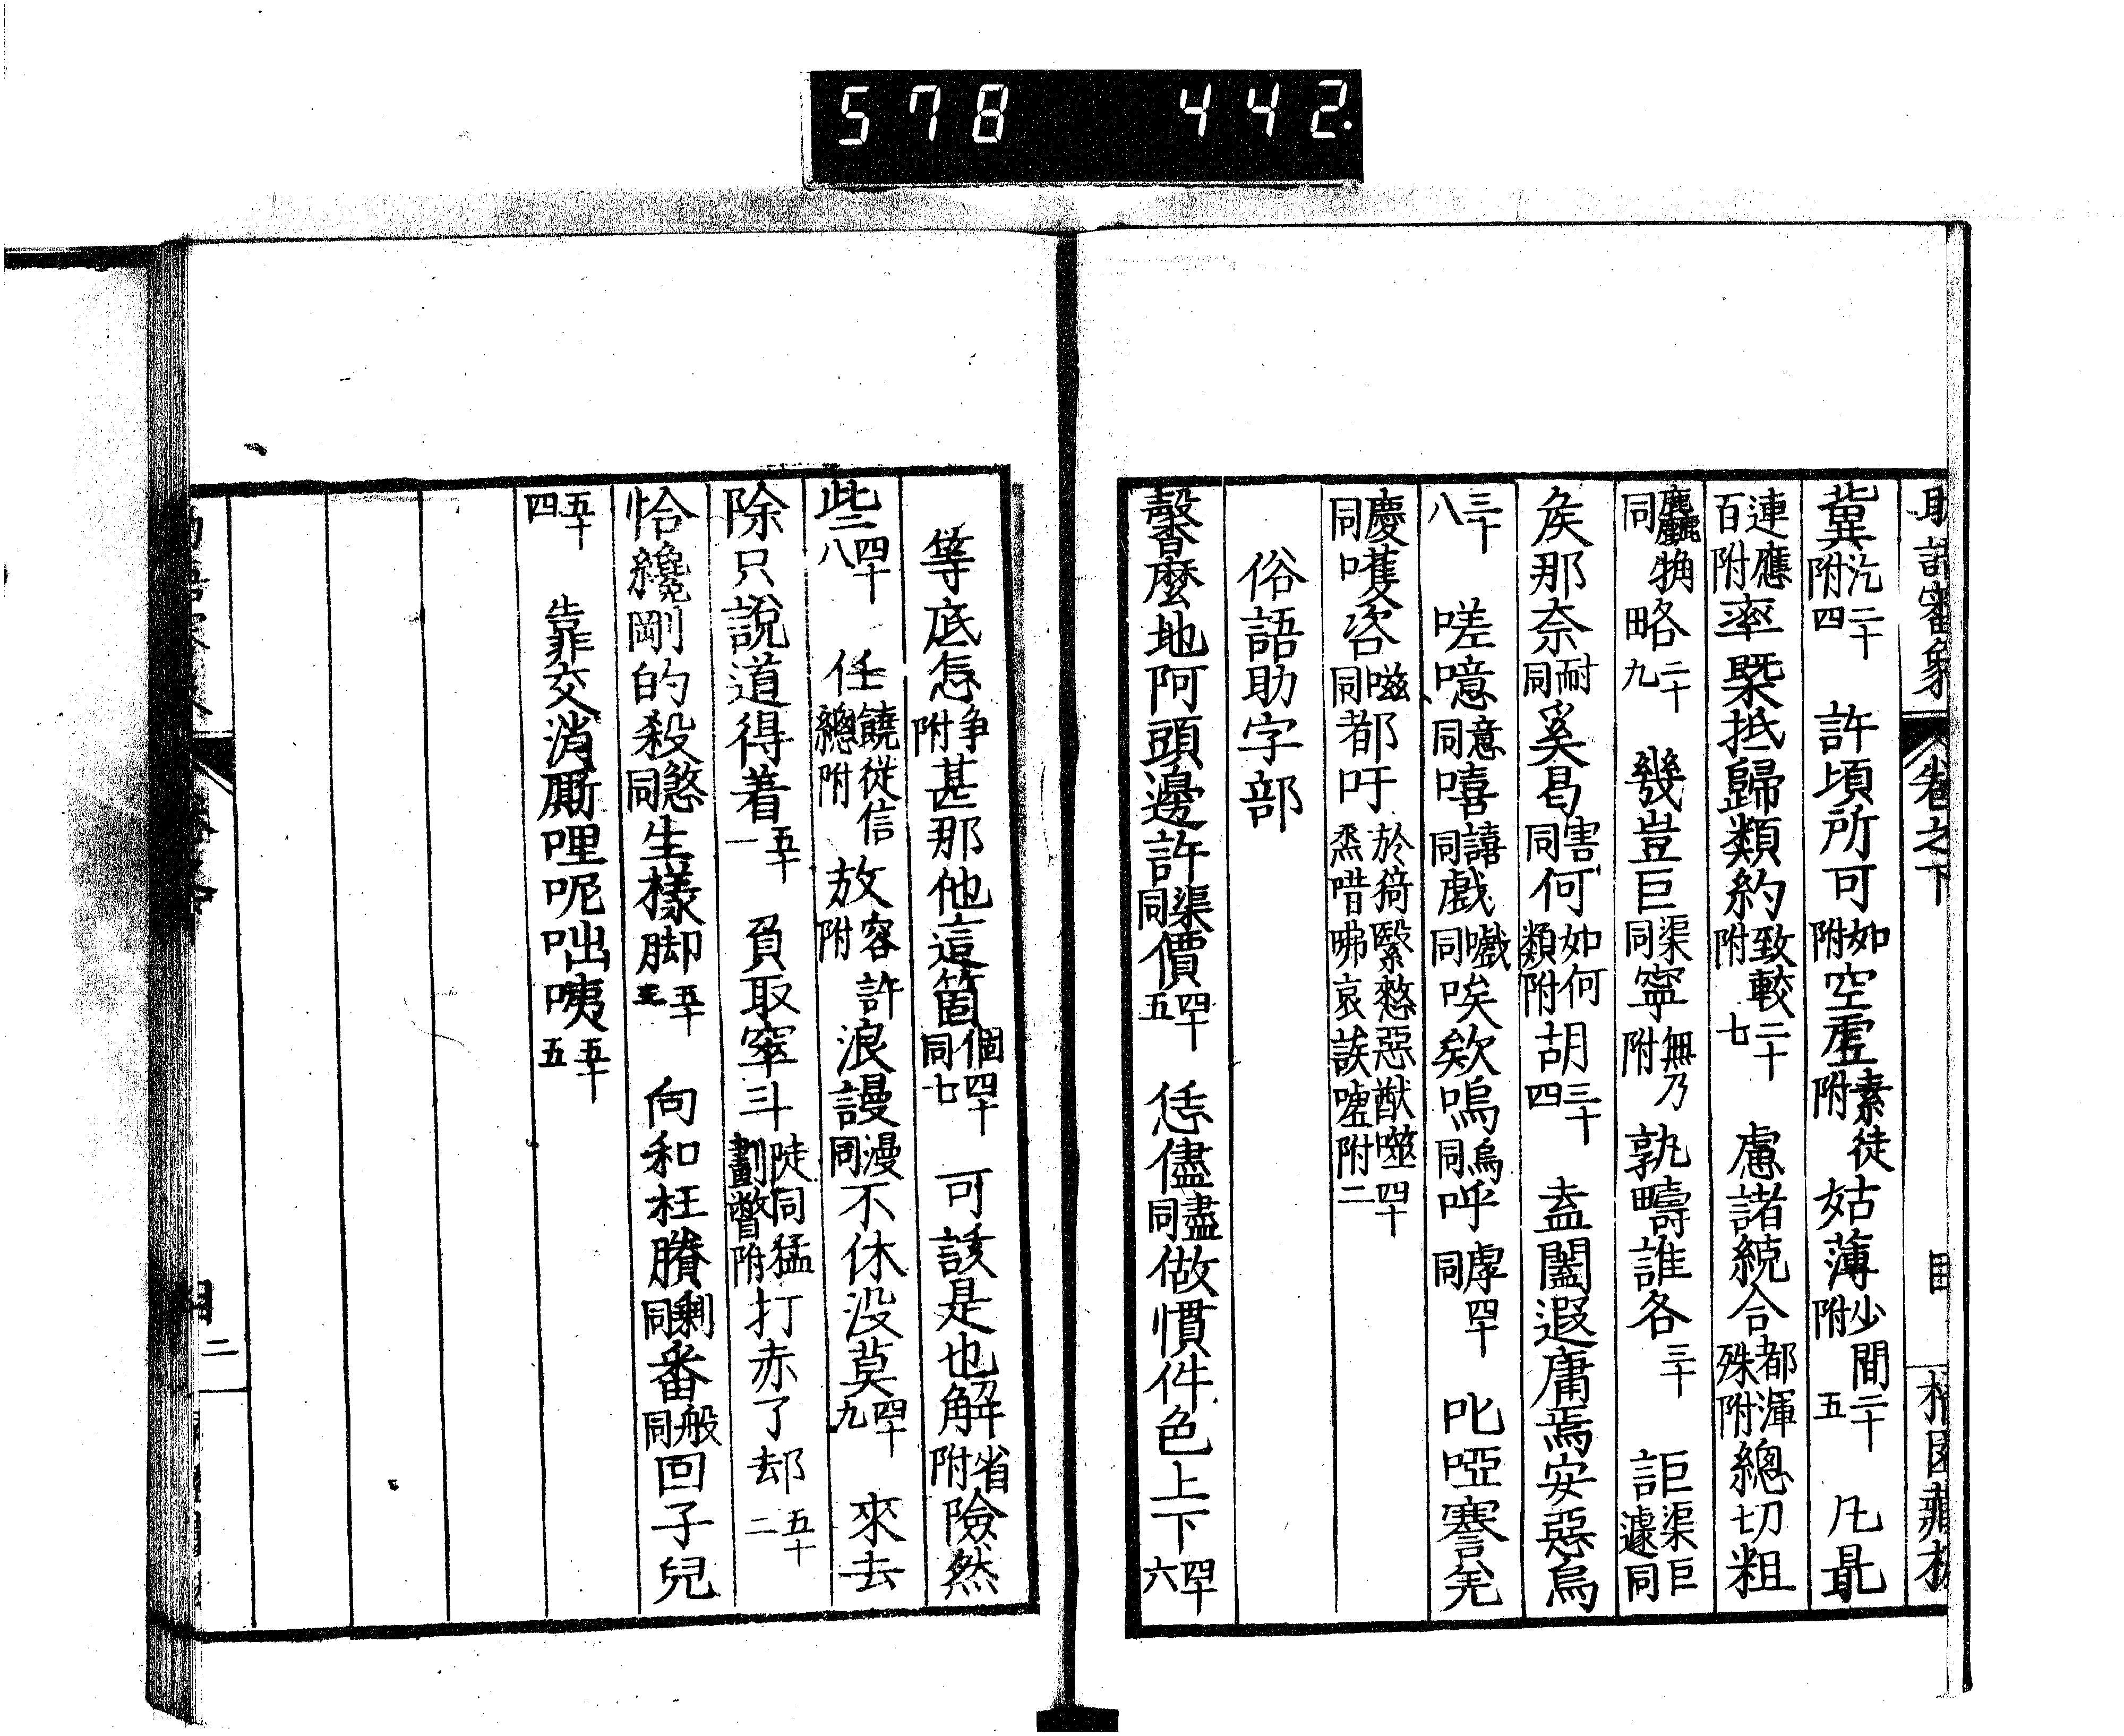 578 442.
助語審象 卷之下 目
冀汔附二十四 許頃所可如附空虛素徒附姑薄少間附二十五 凡最
連應百附率槩抵歸類約致較附二十七 慮諸統合都渾殊附總切粗
麤麄同觕略二十九 幾豈巨渠同寧無乃附孰疇誰各三十 詎渠巨遽同
矣那奈耐同奚曷害同何如何類附胡三十四 盍闔遐庸焉安惡烏
三十八 嗟噫意同嘻譆同戲嚱同唉欸嗚烏同呼虖同四十 叱啞謇羌
慶同嚄咨嗞同都吁於猗繄憗惡猷噬焘唶咈哀誒嘘附四十二
俗語助字部
馨麼地阿頭邊許渠同價四十五 恁儘盡同做慣件色上下四十六
等底怎爭附甚那他這箇個同四十七 可該是也解省附險然
些四十八 任饒從信總附放容許附浪謾漫同不休没莫四十九 來去
除只說道得着五十一 負取窣斗陡同猛劃瞥附打赤了却五十二
恰纔剛的殺煞同生樣脚五十三 向和枉賸剩同番般同回子兒
五十四 靠交消厮哩呢咄咦五十五
二